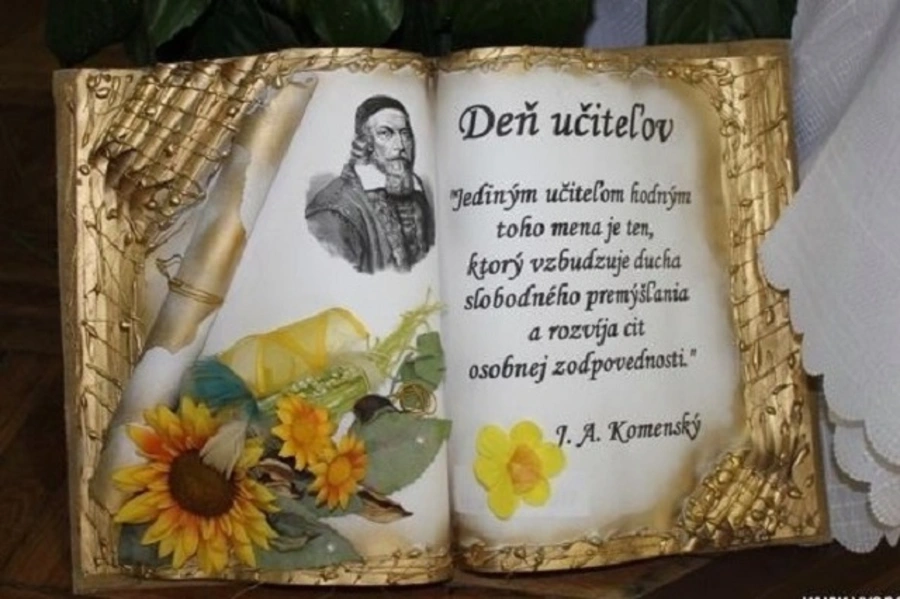 Deň učiteľov
"Jediným učiteľom hodným
toho mena je ten,
ktorý vzbudzuje ducha
slobodného premýšľania
a rozvíja cit
osobnej zodpovednosti."
J. A. Komenský